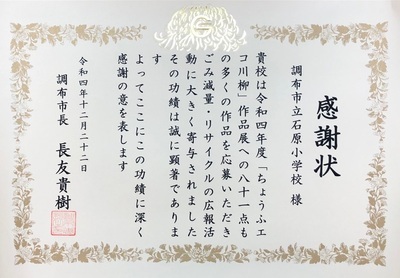 感謝状
調布市立石原小学校 様
貴校は令和四年度「ちょうふエ
コ川柳」作品展への八十一点も
の多くの作品を応募いただき
ごみ減量・リサイクルの広報活
動に大きく寄与されました
その功績は誠に顕著でありま
す
よってここにこの功績に深く
感謝の意を表します
令和四年十二月二十二日
調布市長 長友貴樹